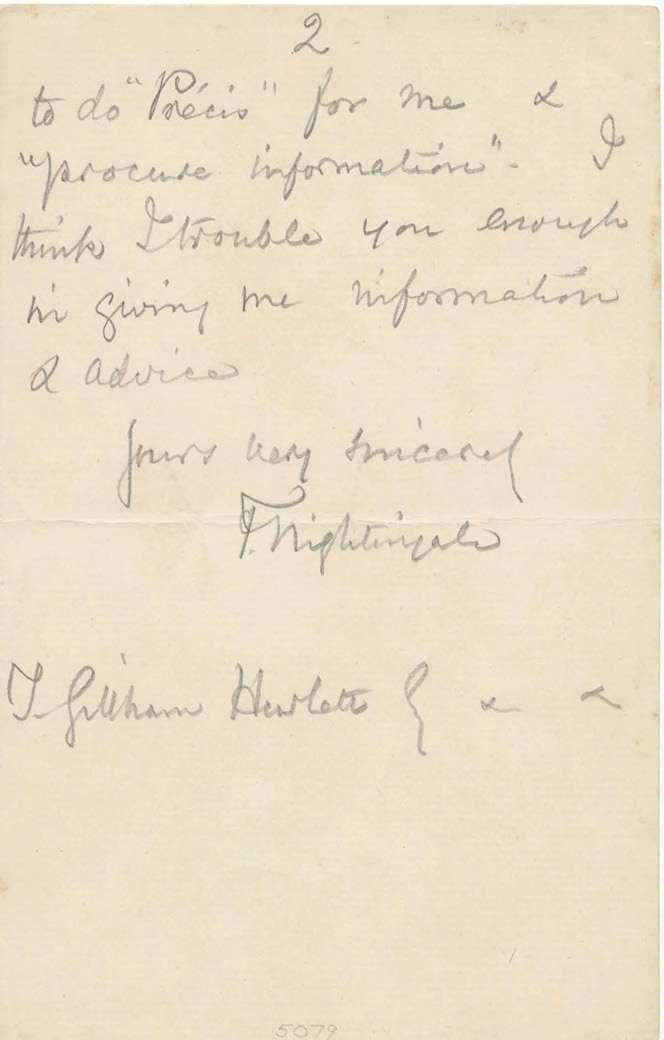 2
to do "Précis" for me &
"procure information". I
think I trouble you enough
in giving me information
& advice
yours very sincerely
F. Nightingale
T. Gillham Hewlett Esq & &
5079